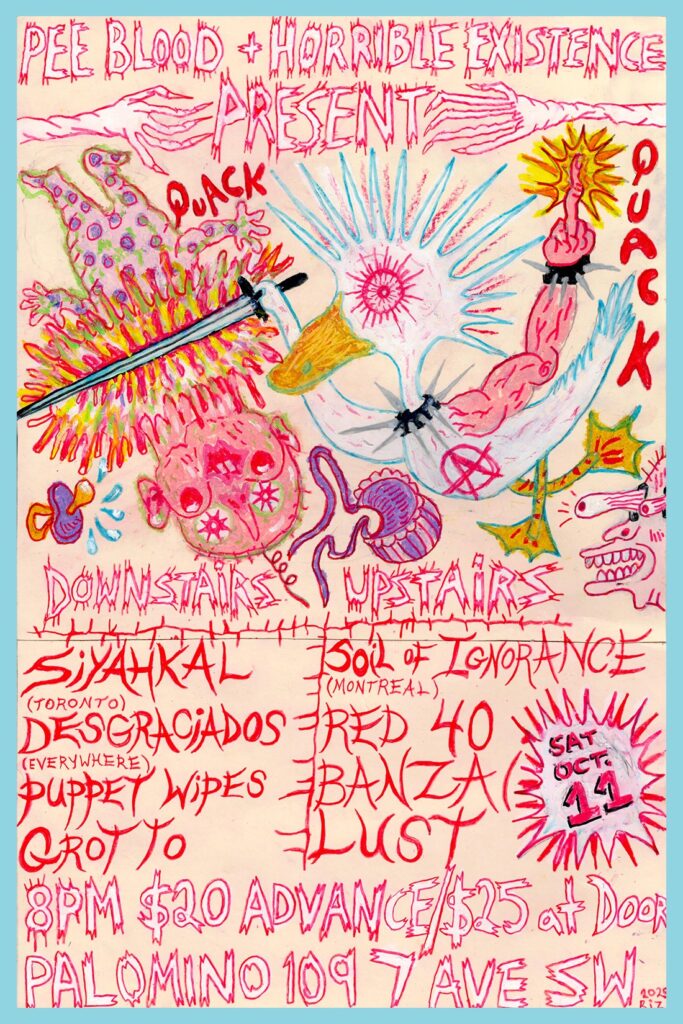 PEE BLOOD + HORRIBLE EXISTENCE
PRESENT
QUACK
QUACK
A
DOWNSTAIRS
SIYAHKAL
(TORONTO)
DESGRACIADOS
(EVERYWHERE)
PUPPET WIPES
GROTTO
UPSTAIRS
SOIL OF IGNORANCE
(MONTREAL)
RED 40
BANZAI
LUST
SAT
OCT.
11
8PM $20 ADVANCE/$25 at DOOR
PALOMINO 109 7 AVE SW
2025
RIZ